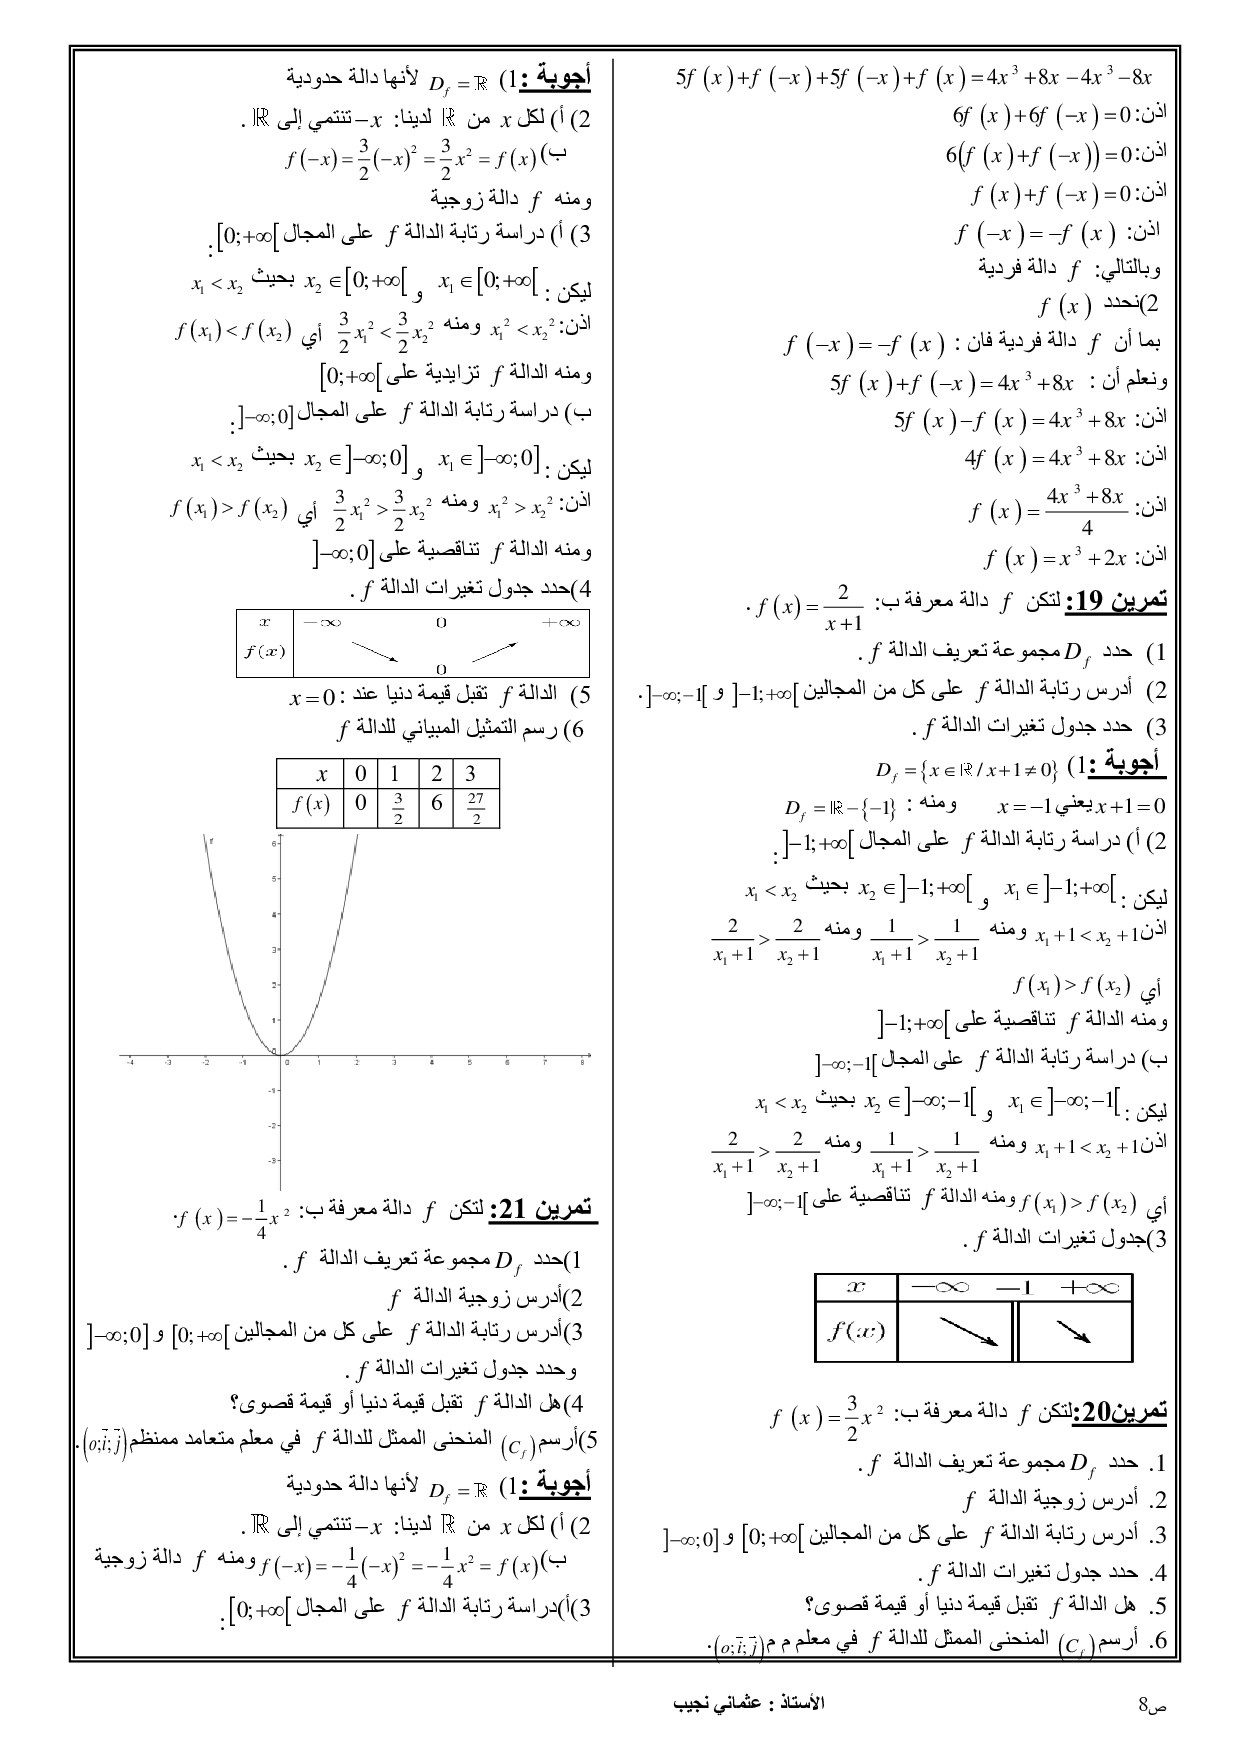 5f(x)+f(−x)+5f(−x)+f(x)=4x³+8x−4x³−8x
اذن: 6f(x)+6f(−x)=0
اذن: 6(f(x)+f(−x))=0
اذن: f(x)+f(−x)=0
اذن: f(−x)=−f(x)
وبالتالي: f دالة فردية
2)نحدد f(x)
بما أن f دالة فردية فان : f(−x)=−f(x)
ونعلم أن : 5f(x)+f(−x)=4x³+8x
اذن: 5f(x)−f(x)=4x³+8x
اذن: 4f(x)=4x³+8x
اذن: f(x)=(4x³+8x)/4
اذن: f(x)=x³+2x
تمرين 19: لتكن f دالة معرفة ب: f(x)=2/(x+1) .
1) حدد D_f مجموعة تعريف الدالة f .
2) أدرس رتابة الدالة f على كل من المجالين ]−1;+∞[ و ]−∞;−1[ .
3) حدد جدول تغيرات الدالة f .
أجوبة :1) D_f={x∈ℝ/x+1≠0}
x+1=0 يعني x=−1 ومنه : D_f=ℝ−{−1}
2) أ) دراسة رتابة الدالة f على المجال ]−1;+∞[ :
ليكن : x₁∈]−1;+∞[ و x₂∈]−1;+∞[ بحيث x₁<x₂
اذن x₁+1<x₂+1 ومنه 1/(x₁+1)>1/(x₂+1) ومنه 2/(x₁+1)>2/(x₂+1)
أي f(x₁)>f(x₂)
ومنه الدالة f تناقصية على ]−1;+∞[
ب) دراسة رتابة الدالة f على المجال ]−∞;−1[
ليكن : x₁∈]−∞;−1[ و x₂∈]−∞;−1[ بحيث x₁<x₂
اذن x₁+1<x₂+1 ومنه 1/(x₁+1)>1/(x₂+1) ومنه 2/(x₁+1)>2/(x₂+1)
أي f(x₁)>f(x₂) ومنه الدالة f تناقصية على ]−∞;−1[
3)جدول تغيرات الدالة f .
x −∞ −1 +∞
f(x)
تمرين20:لتكن f دالة معرفة ب: f(x)=3/2 x²
1. حدد D_f مجموعة تعريف الدالة f .
2. أدرس زوجية الدالة f
3. أدرس رتابة الدالة f على كل من المجالين [0;+∞[ و ]−∞;0]
4. حدد جدول تغيرات الدالة f .
5. هل الدالة f تقبل قيمة دنيا أو قيمة قصوى؟
6. أرسم (C_f) المنحنى الممثل للدالة f في معلم م م (o;i⃗;j⃗).
أجوبة :1) D_f=ℝ لأنها دالة حدودية
2) أ) لكل x من ℝ لدينا: −x تنتمي إلى ℝ .
ب) f(−x)=3/2(−x)²=3/2 x²=f(x)
ومنه f دالة زوجية
3) أ) دراسة رتابة الدالة f على المجال [0;+∞[ :
ليكن : x₁∈[0;+∞[ و x₂∈[0;+∞[ بحيث x₁<x₂
اذن: x₁²<x₂² ومنه 3/2 x₁²<3/2 x₂² أي f(x₁)<f(x₂)
ومنه الدالة f تزايدية على [0;+∞[
ب) دراسة رتابة الدالة f على المجال ]−∞;0] :
ليكن : x₁∈]−∞;0] و x₂∈]−∞;0] بحيث x₁<x₂
اذن: x₁²>x₂² ومنه 3/2 x₁²>3/2 x₂² أي f(x₁)>f(x₂)
ومنه الدالة f تناقصية على ]−∞;0]
4)حدد جدول تغيرات الدالة f .
x −∞ 0 +∞
f(x) 0
5) الدالة f تقبل قيمة دنيا عند : x=0
6) رسم التمثيل المبياني للدالة f
x 0 1 2 3
f(x) 0 3/2 6 27/2
f
6
5
4
3
2
1
0
-4 -3 -2 -1 1 2 3 4 5 6 7 8
-1
-2
-3
تمرين 21: لتكن f دالة معرفة ب: f(x)=−1/4 x² .
1)حدد D_f مجموعة تعريف الدالة f .
2)أدرس زوجية الدالة f
3)أدرس رتابة الدالة f على كل من المجالين [0;+∞[ و ]−∞;0]
وحدد جدول تغيرات الدالة f .
4)هل الدالة f تقبل قيمة دنيا أو قيمة قصوى؟
5)أرسم (C_f) المنحنى الممثل للدالة f في معلم متعامد ممنظم (o;i⃗;j⃗).
أجوبة :1) D_f=ℝ لأنها دالة حدودية
2) أ) لكل x من ℝ لدينا: −x تنتمي إلى ℝ .
ب) f(−x)=−1/4(−x)²=−1/4 x²=f(x) ومنه f دالة زوجية
3)أ)دراسة رتابة الدالة f على المجال [0;+∞[ :
ص8
الأستاذ : عثماني نجيب